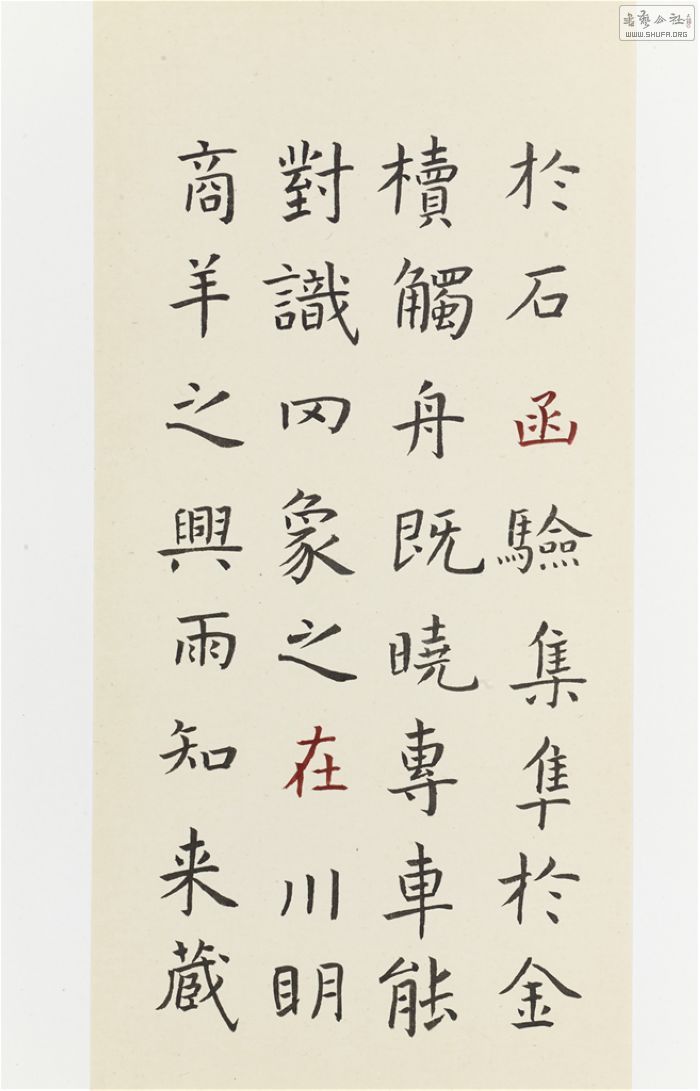 於石函驗集隼於金
櫝觸舟既曉專車能
對識罔象之在川明
商羊之興雨知来蔵
WWW.SHUFA.ORG